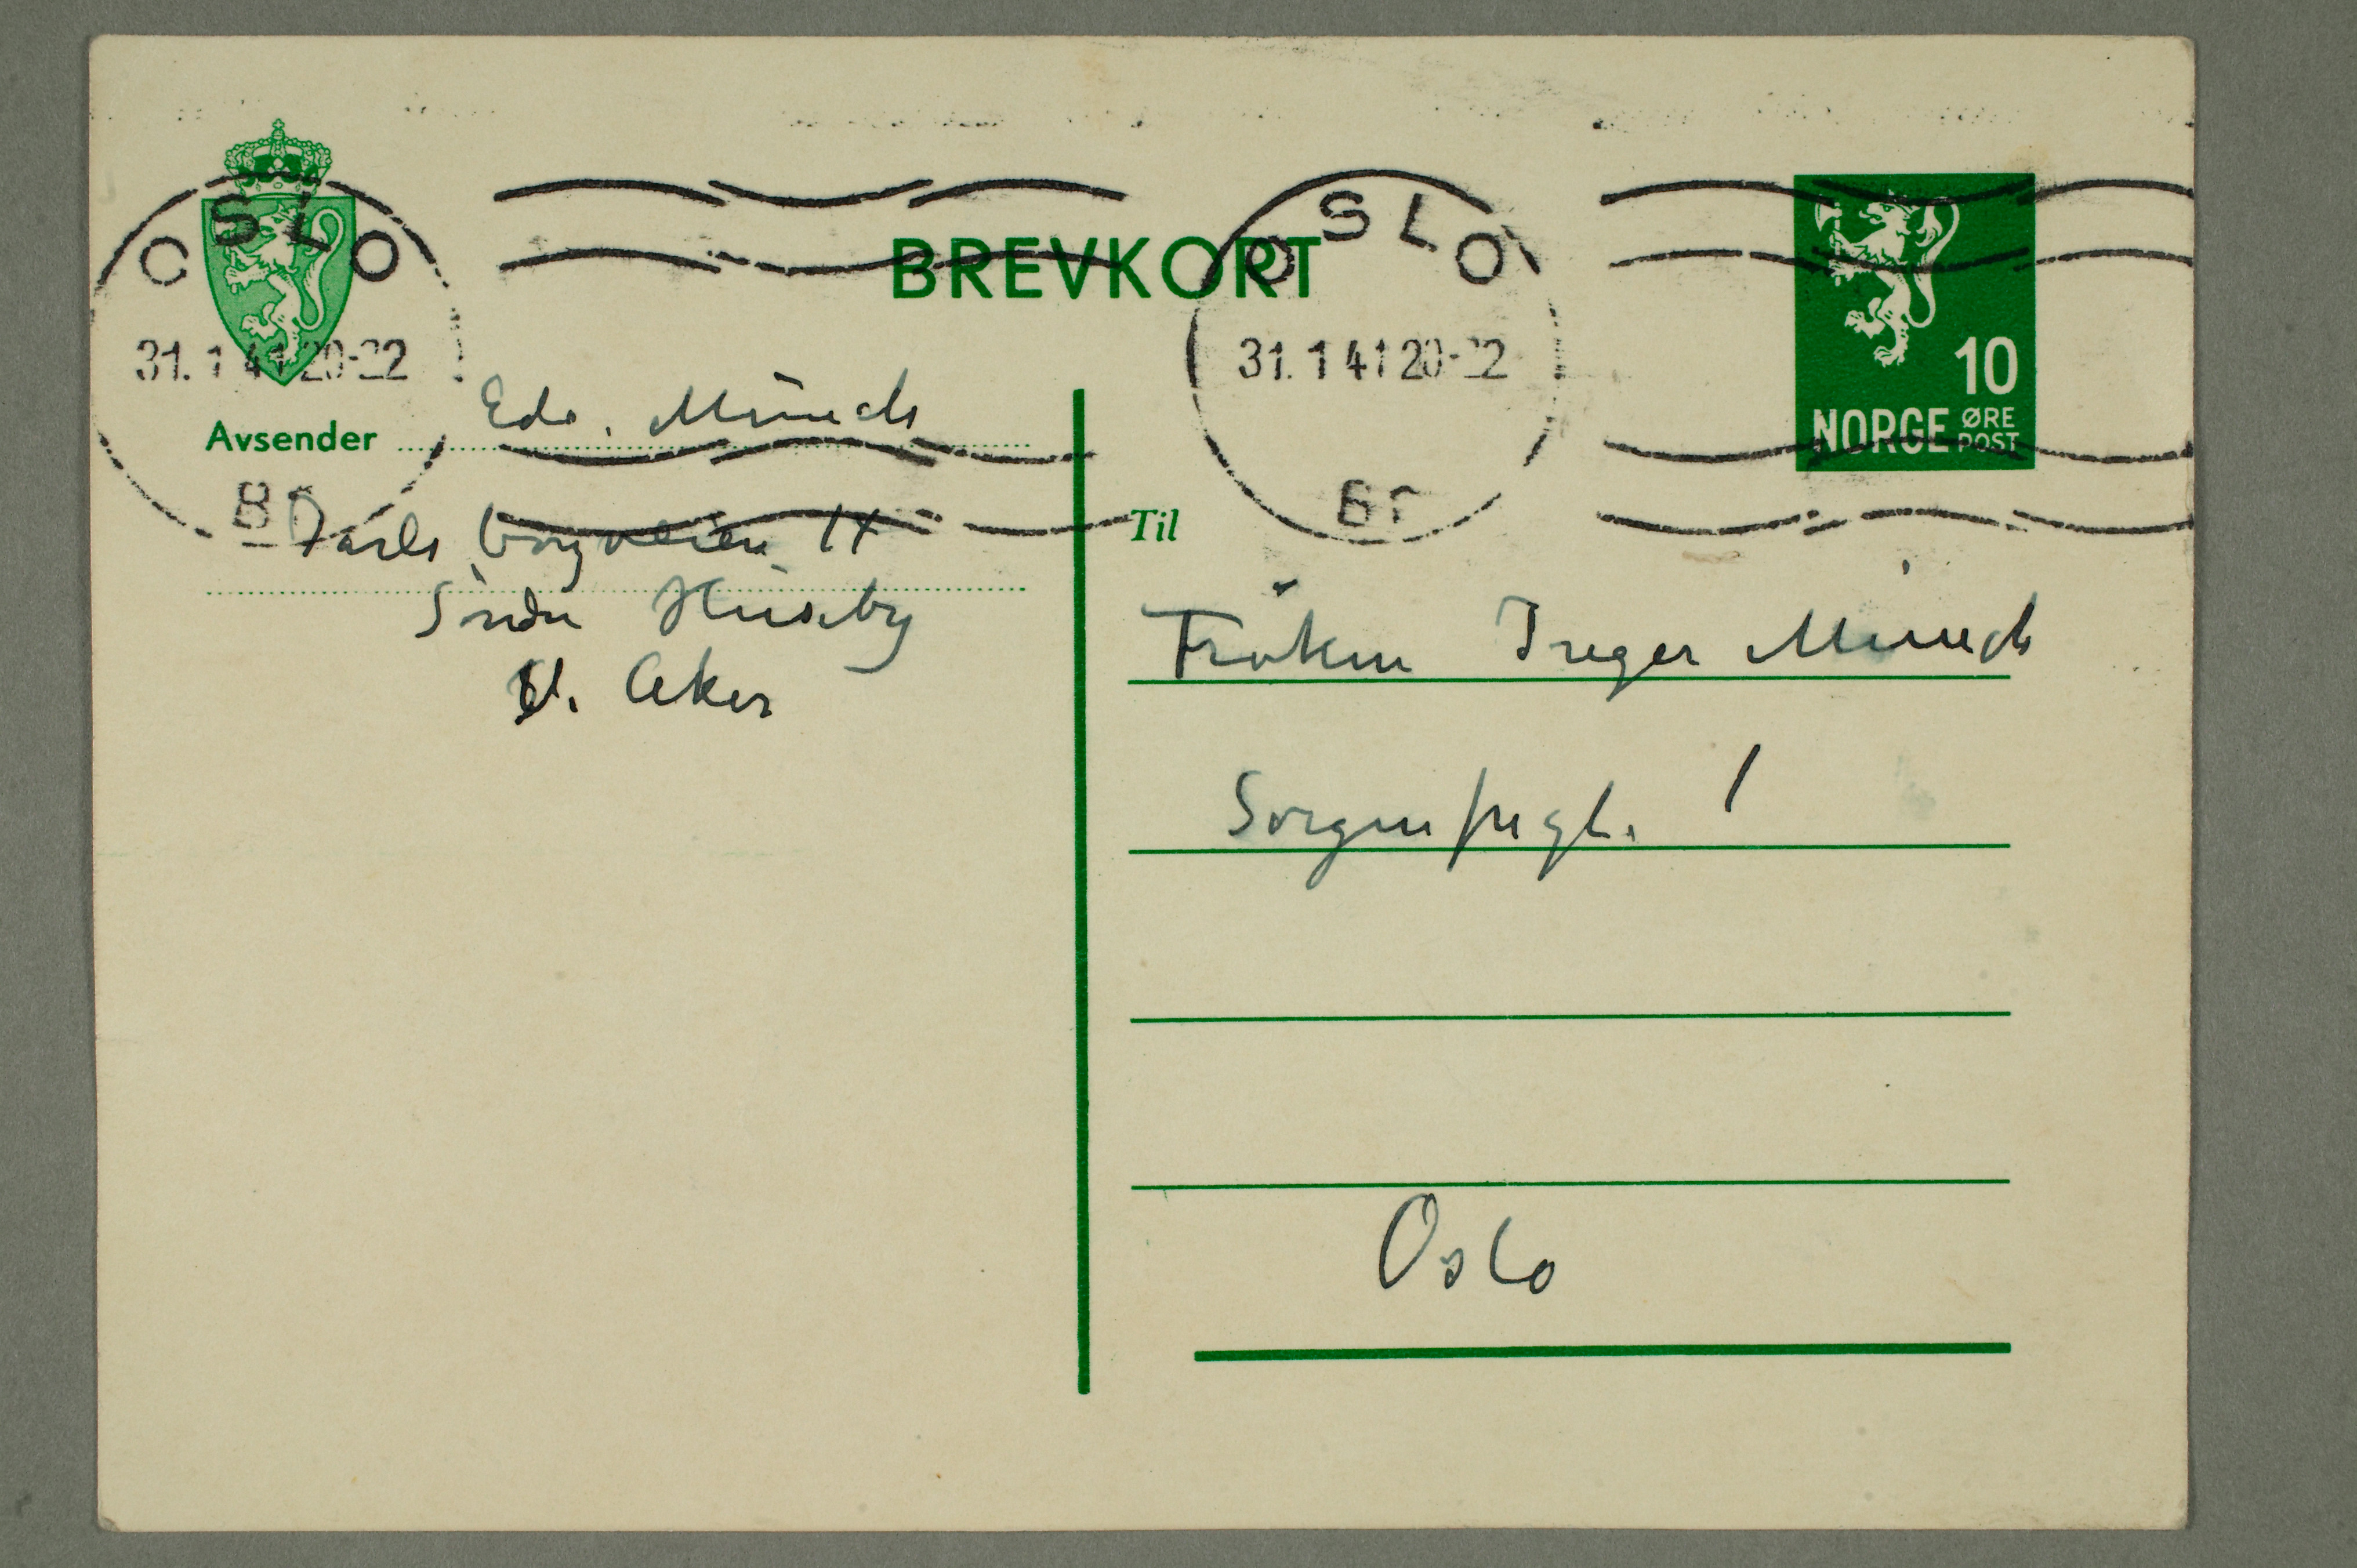 OSLO
31.1 41 20-22
Br
BREVKORT
OSLO
31.1 41 20-22
Br
10
NORGE ØRE
POST
Avsender Edv. Munch
Jarlsborgveien 14
Søndre Huseby
V. Aker
Til
Frøken Inger Munch
Sorgenfrigt. 1
Oslo